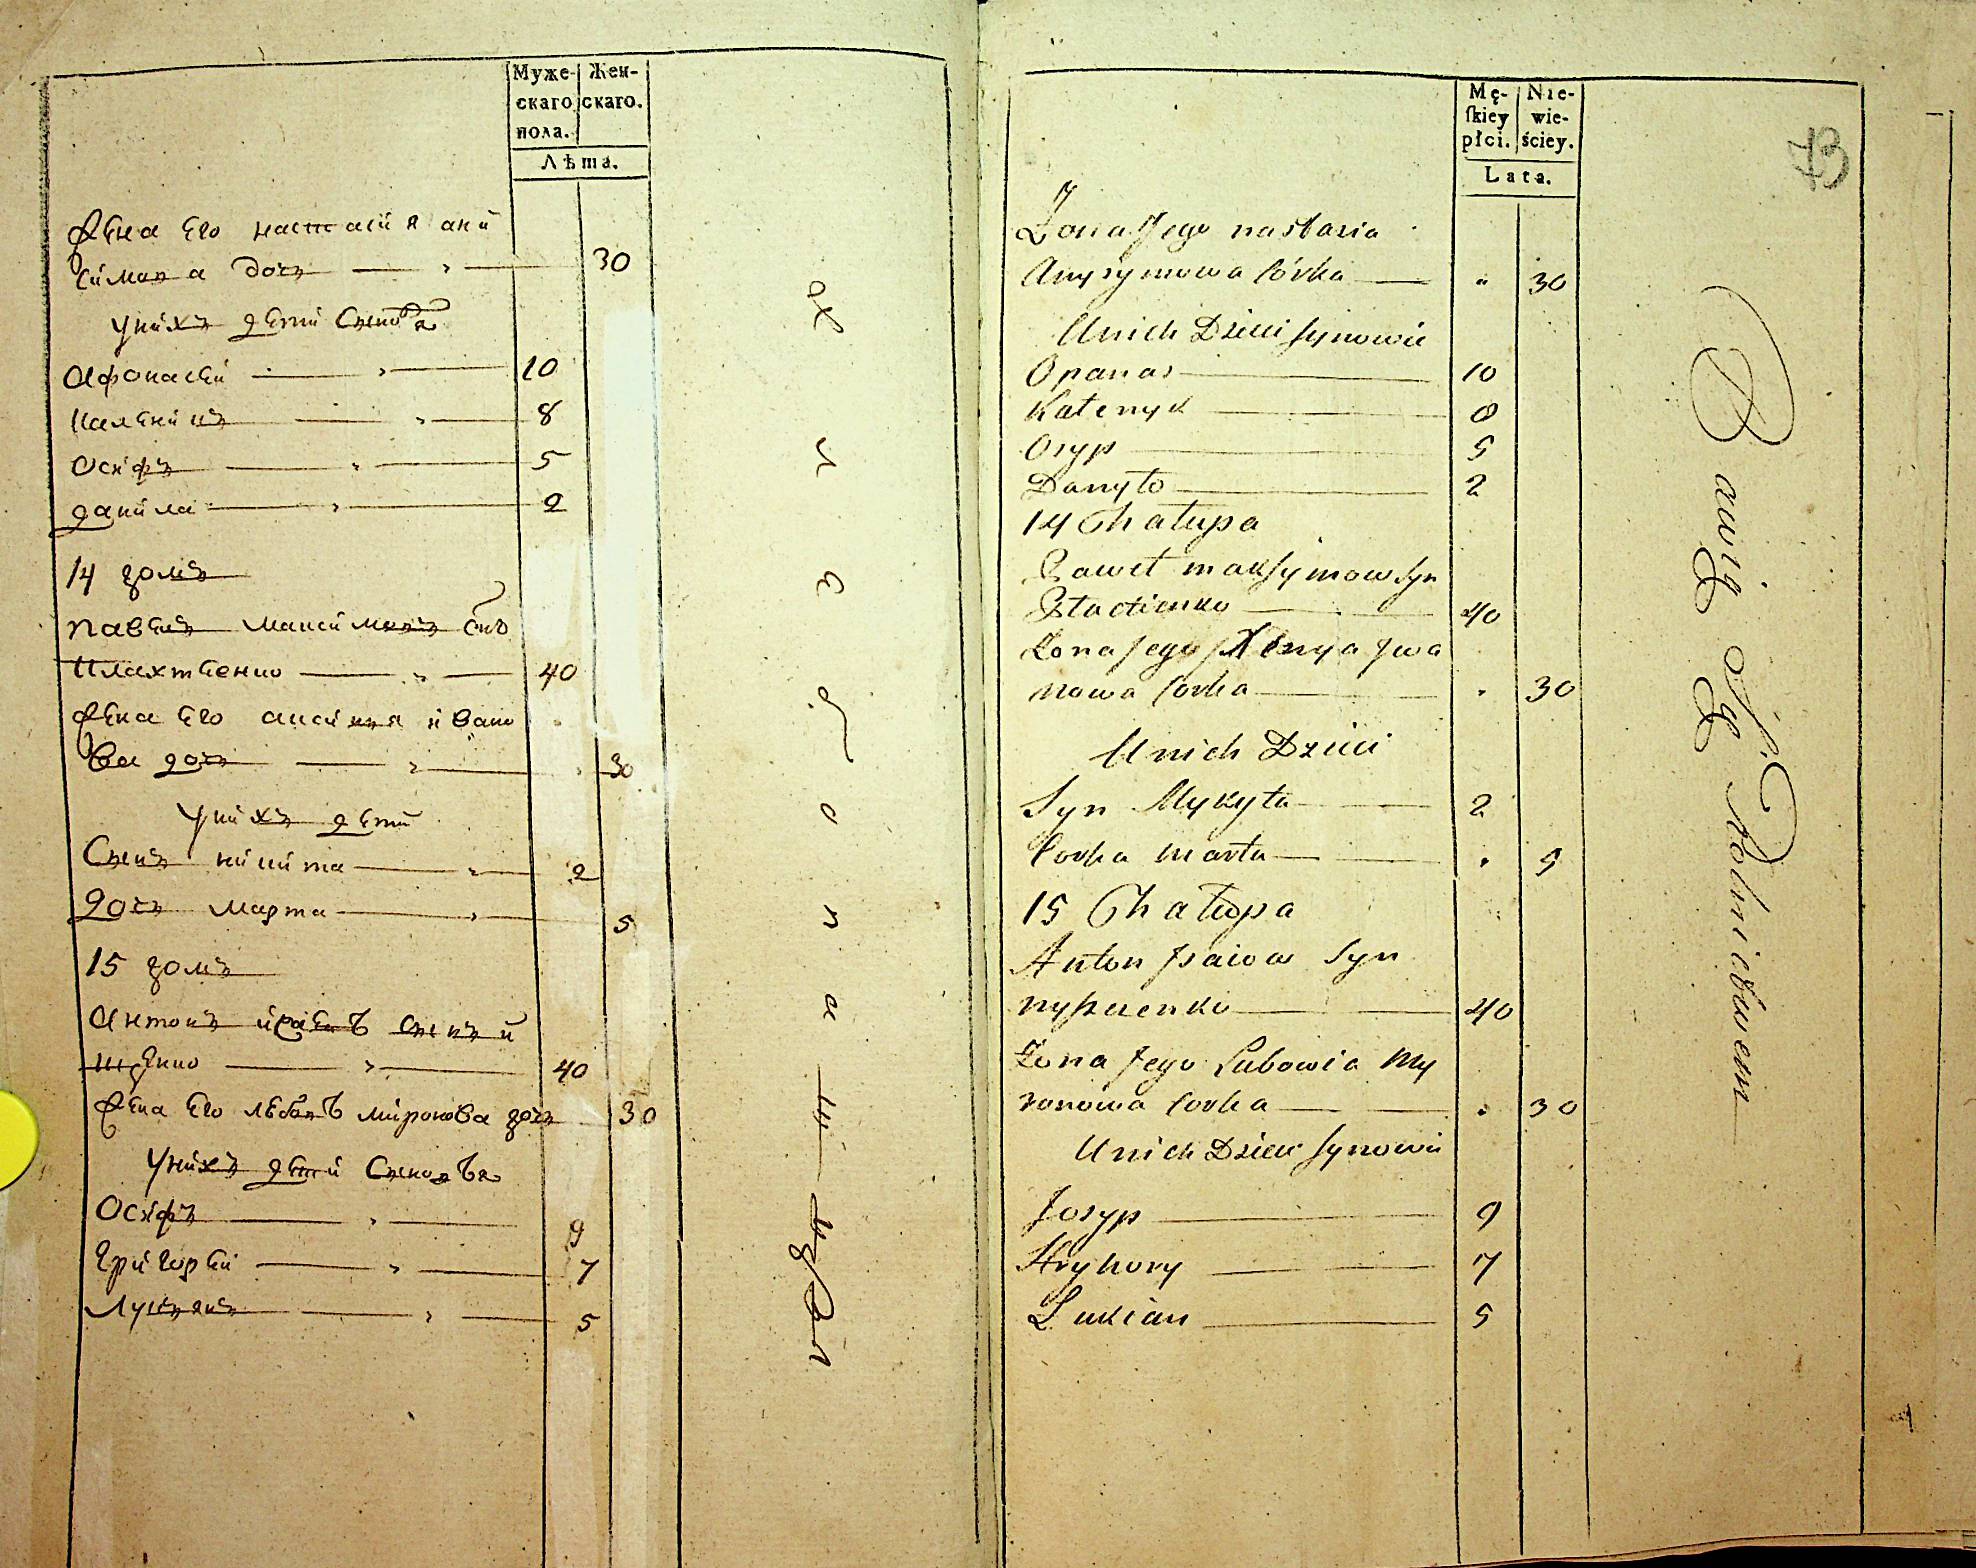 Муже-
скаго
пола.
Жен-
скаго.
Лѣта.
Жена Его настасия ани
симова дочь — " — 30
Унихъ дети Сыновя
Афонасей — " — 10
Каленикъ — " — 8
Осифъ — " — 5
данила — " — 2
14 домъ
павелъ максимовъ снъ
плахтѣенко — " — 40
Жена Его аксиния ивано
ва дочь — " — 30
Унихъ дети
Сынъ никита — " — 2
дочь марта — " — 5
15 домъ
Антонъ исаевъ сынъ
— " — 40
Жена Его любовъ миронова дочь 30
Унихъ дети Сыновъя
Осифъ — " — 9
Григорей — " — 7
Лукиянъ — " — 5
Mę-
skiey
płci.
Nie-
wie-
ściey.
Lata.
73
Żona Jego nastazia
Anyzymowa Córka — " 30
Unich Dzieci synowie
Opanas — 10
Kalenyk — 8
Osyp — 5
Danyło — 2
14 Chałupa
Paweł maksymow syn
40
Zona Jego Xenya Jwa
nowa Corka — " 30
Unich Dzieci
Syn Mykyta — 2
Corka marta — " 5
15 Chałupa
Anton Jsaiow Syn
40
Zona Jego Lubowia My
ronowa Corka — " 30
Unich Dzieci synowie
Josyp — 9
Hryhory — 7
Lukian — 5
Bawią Się Rolnictwem